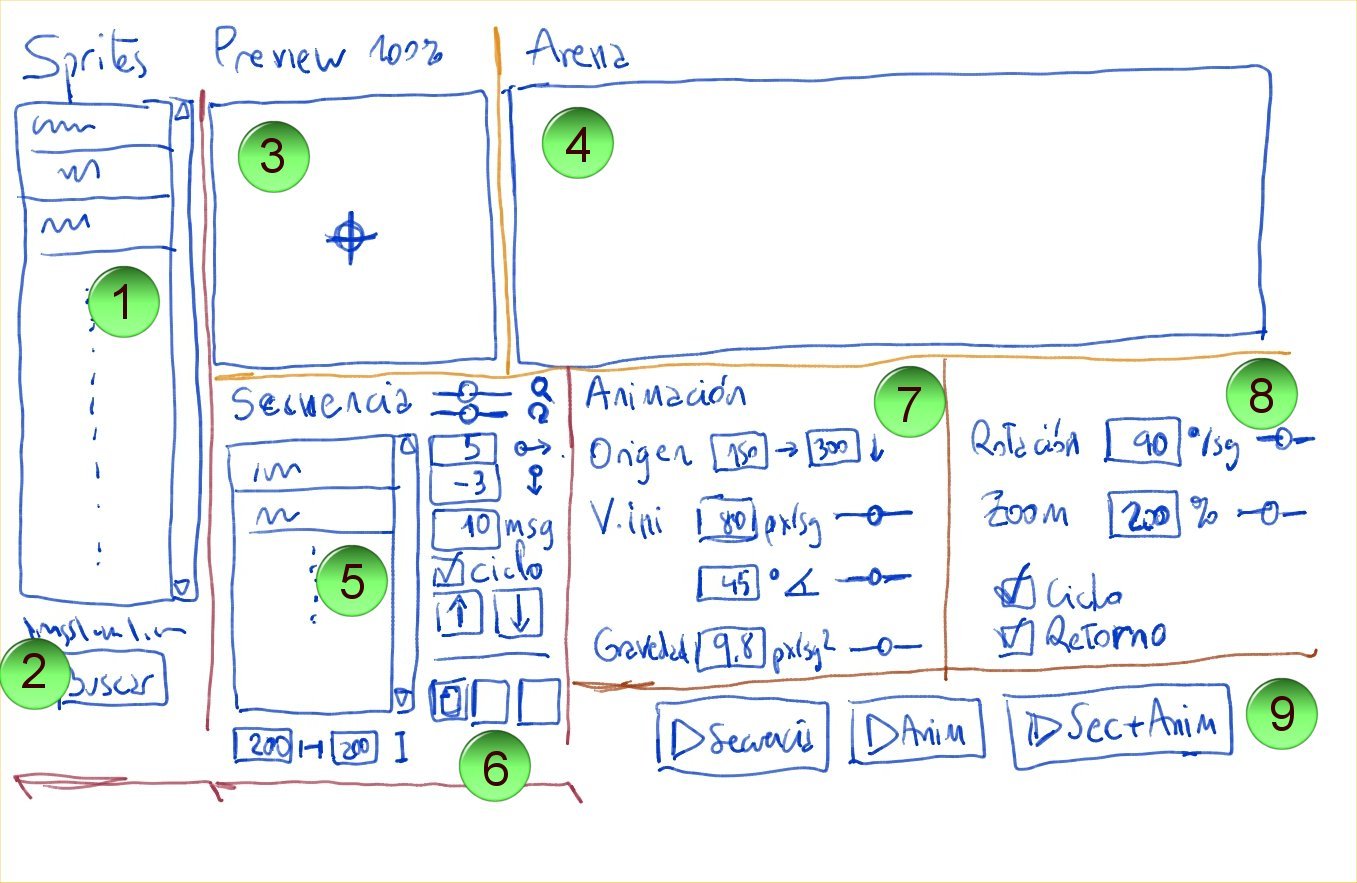 Sprites
Preview 100%
Arena
3
4
1
Secuencia
5
-3
10 msg
Ciclo
5
2
Buscar
200
200
6
Animación
7
Origen 150 → 300 ↓
V.ini 80 px/sg
45 °
Gravedad 9.8 px/sg²
8
Rotación 90 °/sg
Zoom 200 %
Ciclo
Retorno
Secuencia
Anim
Sec+Anim
9